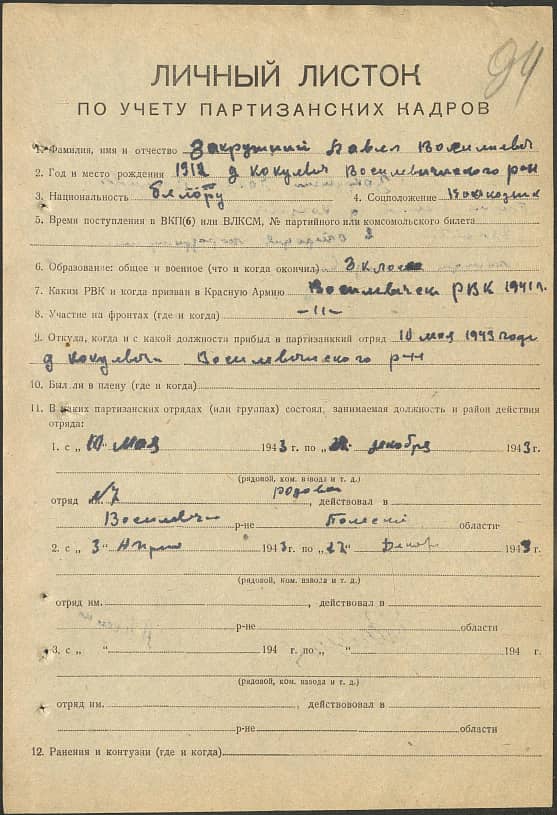 94
ЛИЧНЫЙ ЛИСТОК
ПО УЧЕТУ ПАРТИЗАНСКИХ КАДРОВ
1. Фамилия, имя и отчество Закружний Павел Василевич
2. Год и место рождения 1912 д Кокулвич Василевичского р-н
3. Национальность 4. Соцположение
5. Время поступления в ВКП(б) или ВЛКСМ, № партийного или комсомольского билета
6. Образование: общее и военное (что и когда окончил) 3 класс
7. Каким РВК и когда призван в Красную Армию Василевичски РВК 1941 г.
8. Участие на фронтах (где и когда) -11-
9. Откуда, когда и с какой должности прибыл в партизанкий отряд 10 мая 1943 года
д Кокулвич Василевичского р-н
10. Был ли в плену (где и когда)
11. В каких партизанских отрядах (или группах) состоял, занимаемая должность и район действия
отряда:
1. с „ 10 " мая 1943 г. по „ " декабря 1943 г.
(рядовой, ком. взвода и т. д.)
отряд им. №7 рядовой, действовал в
Василевич р-не Полески области
2. с „ 3 " 1943 г. по „ 22 " Декаб 1943
(рядовой, ком. взвода и т. д.)
отряд им. , действовал в
р-не области
3. с „ " 194 г. по „ " 194 г.
(рядовой, ком. взвода и т. д.)
отряд им. , действововал в
р-не области
12. Ранения и контузии (где и когда)